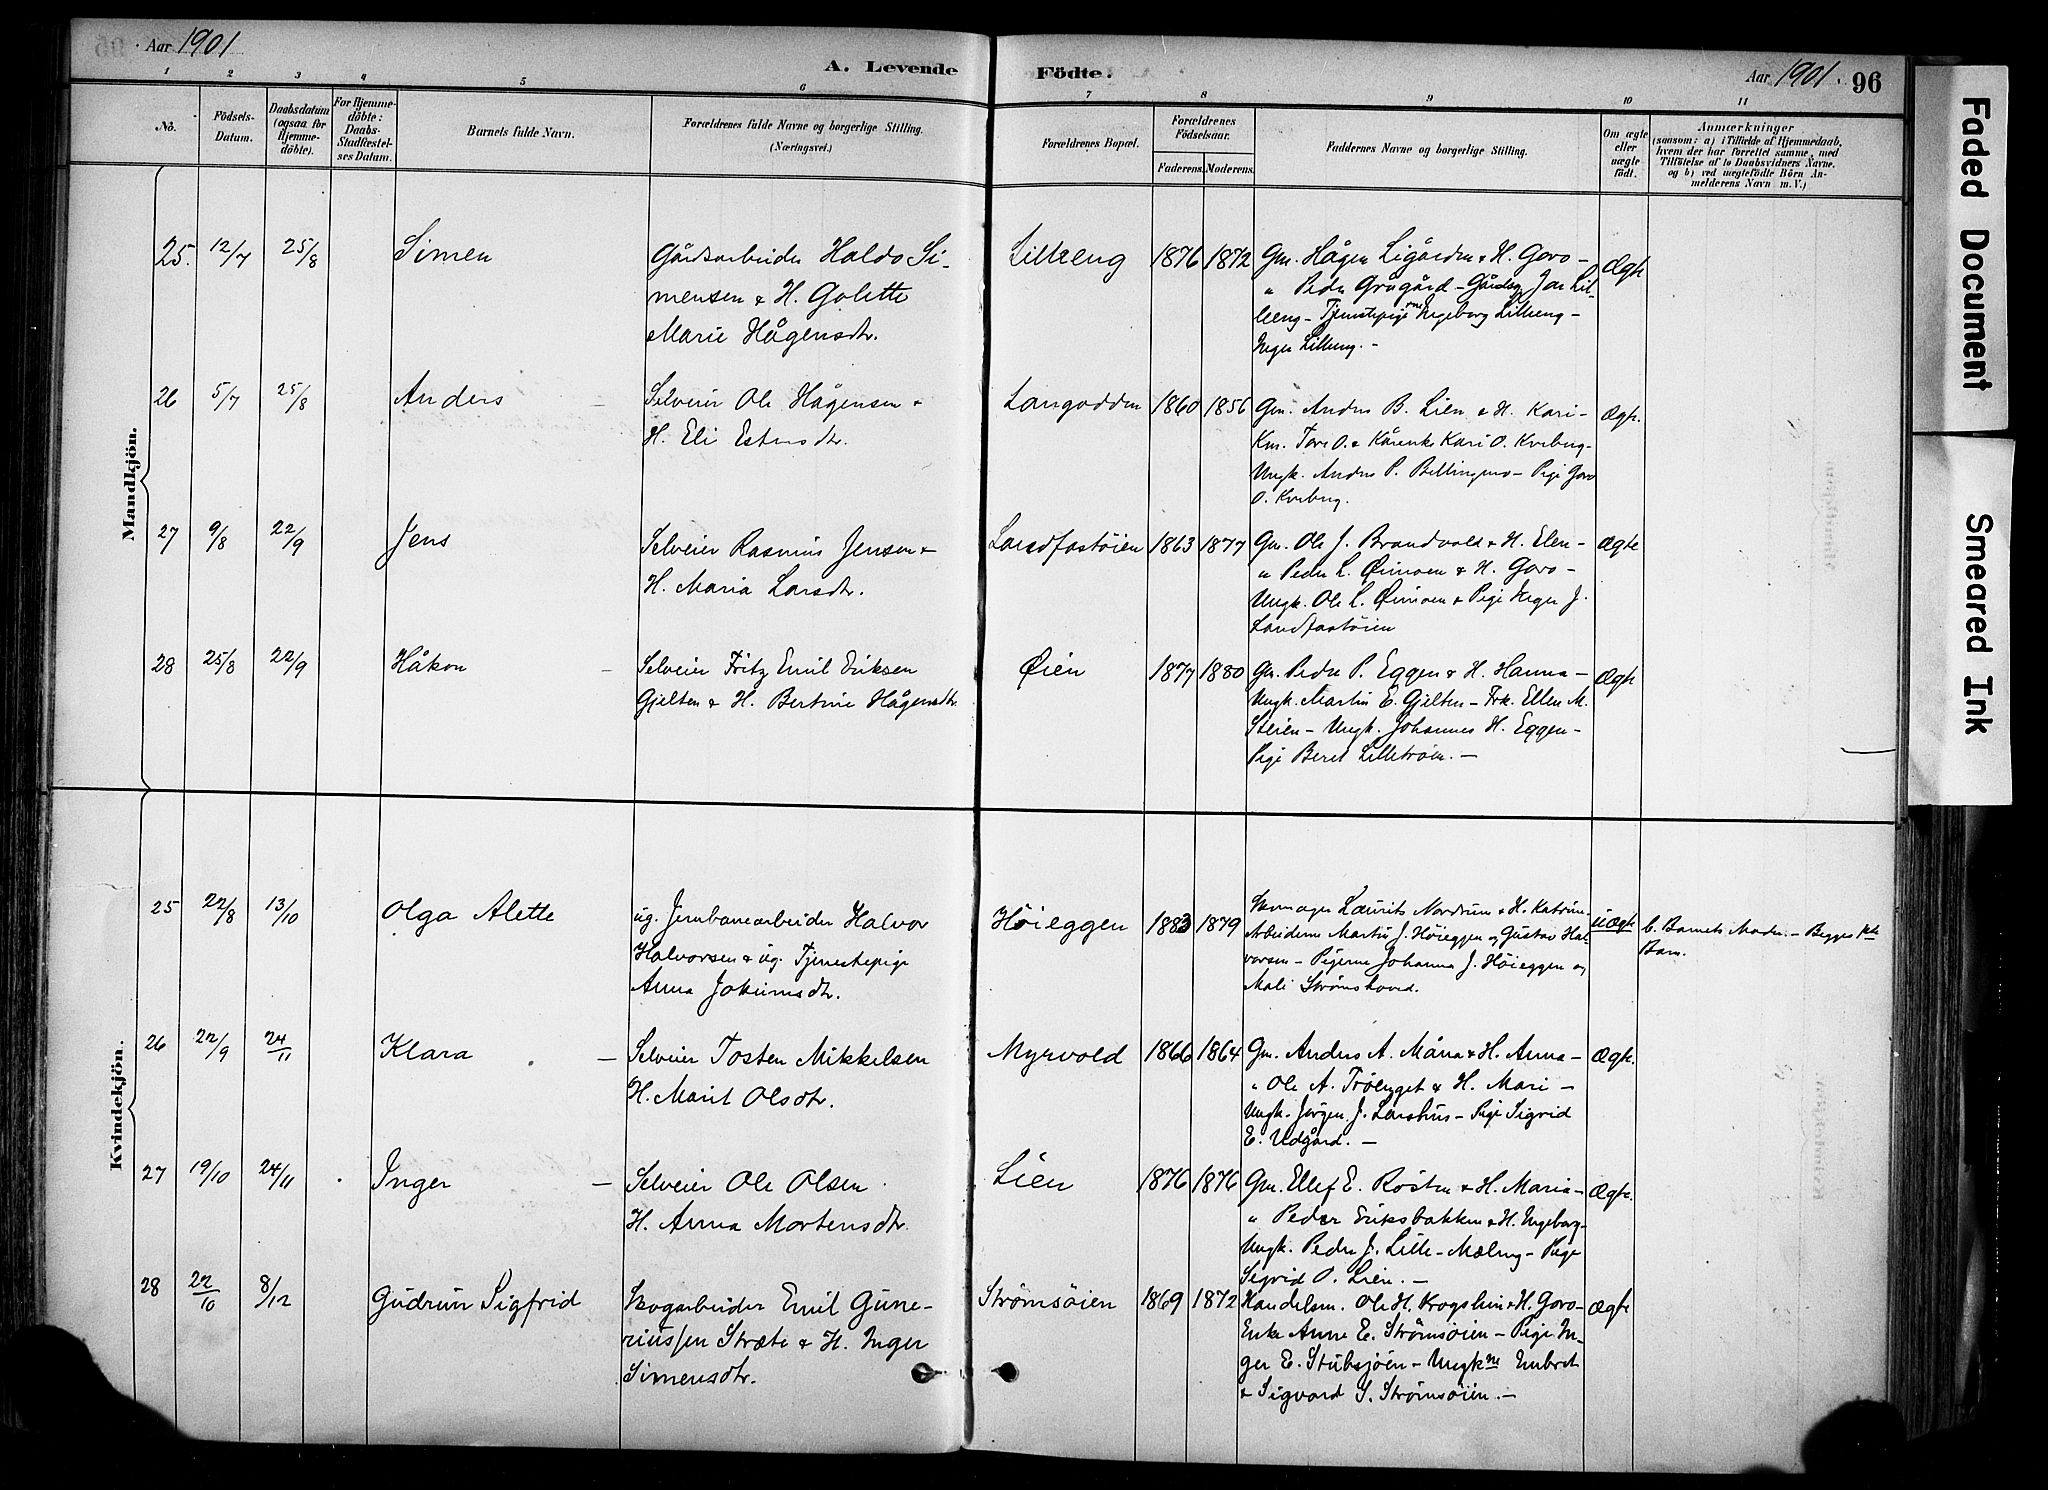 Aar 1901
A. Levende
Födte.
Aar 1901. 96
1 2 3 4 5 6 7 8 9 10 11
No.
Födsels-
Datum.
Daabsdatum
(ogsaa for
Hjemme-
döbte).
For Hjemme-
döbte:
Daabs-
Stadfæstel-
ses Datum.
Barnets fulde Navn.
Forældrenes fulde Navne og borgerlige Stilling.
(Næringsvei.)
Forældrenes Bopæl.
Forældrenes
Födselsaar.
Faderens. Moderens.
Faddernes Navne og borgerlige Stilling.
Om ægte
eller
uægte
födt.
Anmærkninger
(saasom: a) i Tilfælde af Hjemmedaab,
hvem der har forrettet samme, med
Tilföielse af to Daabsvidners Navne,
og b) ved uægtefödte Börn An-
melderens Navn m. V.)
Mandkjön.
25. 12/7 25/8 Simen
Gårdsarbeider Haldo Si-
mensen & H. Golette
Marie Hågensdtr.
Lilleeng 1876 1872
Gm. Hågen Ligården & H. Goro -
" Peder Grøgård - Gårdbr. Jon Lil-
leeng - Tjenestepigerne Ingeborg Lilleeng -
Inger Lilleeng. -
Ægte
26 5/7 25/8 Anders
Selveier Ole Hågensen &
H. Eli Estensdtr.
Langodden 1860 1856
Gm. Anders B. Lien & H. Kari -
Km. Tore O. & Kårenke Kari O. Kveberg -
Ungk. Anders P. Bellingmo - Pige Goro
O. Kveberg.
Ægte.
27 9/8 22/9 Jens
Selveier Rasmus Jensen &
H. Maria Larsdtr.
Landfastøien 1863 1877
Gm. Ole J. Brandvold & H. Elen -
" Peder L. Øimoen & H. Goro -
Ungk. Ole L. Øimoen & Pige Inger J.
Landfastøien
Ægte
28 25/8 22/9 Håkon
Selveier Fritz Emil Eriksen
Gjelten & H. Bertine Hågensdtr.
Øien 1877 1880
Gm. Peder P. Eggen & H. Hanna -
Ungk. Martin E. Gjelten - Frk. Ellen M.
Steien - Ungk. Johannes H. Eggen -
Pige Beret Lilletrøen. -
Ægte
Kvindekjön.
25 22/8 13/10 Olga Alette
ug. Jernbanearbeider Halvor
Halvorsen & ug. Tjenestepige
Anna Jokumsdtr.
Høieggen 1883 1879
Skomager Laurits Nordrum & H. Katrine -
Arbeiderne Martin J. Høieggen og Gustav Hal-
vorsen - Pigerne Johanna J. Høieggen og
Mali Strømshoved.
uægte
b. Barnets Moder. - Begges 1ste
Barn.
26 22/9 24/11 Klara
Selveier Tosten Mikkelsen
H. Marit Olsdtr.
Myrvold 1866 1864
Gm. Anders A. Måna & H. Anna -
" Ole A. Trøeygget & H. Mari -
Ungk. Jørgen J. Larshus - Pige Sigrid
E. Udgård. -
Ægte.
27 19/10 24/11 Inger
Selveier Ole Olsen
H. Anna Mortensdtr.
Lien 1876 1876
Gm. Ellef E. Røsten & H. Maria -
" Peder Eriksbakken & H. Ingeborg -
Ungk. Peder J. Lille-Mæleng - Pige
Sigrid O. Lien. -
Ægte.
28 22/10 8/12 Gudrun Sigfrid
Skogarbeider Emil Gune-
riussen Stræte & H. Inger
Simensdtr.
Strømsøien 1869 1872
Handelsm. Ole H. Krogshin & H. Goro -
Enke Anne E. Strømsøien - Pige In-
ger E. Stubsjøen - Ungkne Embret
& Sigvard S. Strømsøien. -
Ægte
Faded Document
Smeared Ink